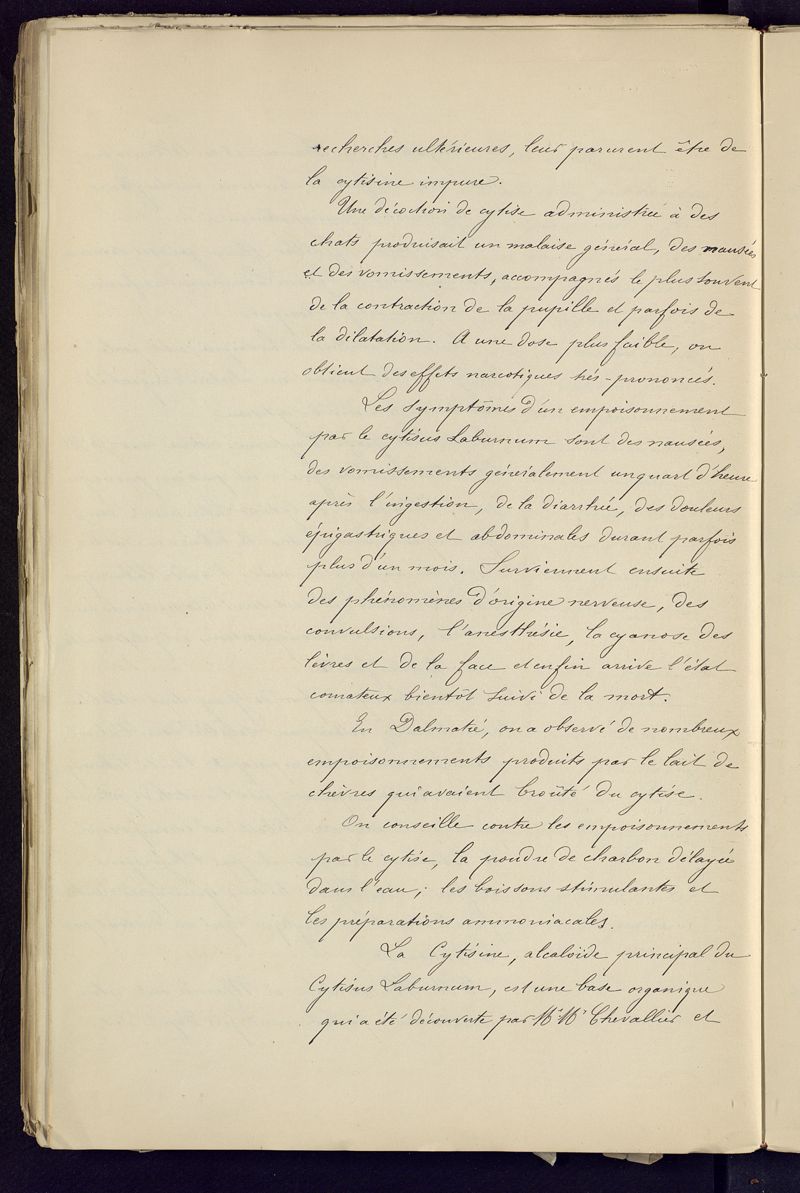 recherches ultérieures, leur parurent être de
la cytisine impure.
Une décoction de cytise administrée à des
chats produisait un malaise général, des nausées
et des vomissements, accompagnés le plus souvent
de la contraction de la pupille et parfois de
la dilatation. A une dose plus faible, on
obtient des effets narcotiques très-prononcés.
Les symptômes d'un empoisonnement
par le cytisus Laburnum sont des nausées,
des vomissements généralement un quart d'heure
après l'ingestion, de la diarrhée, des douleurs
épigastriques et abdominales durant parfois
plus d'un mois. Surviennent ensuite
des phénomènes d'origine nerveuse, des
convulsions, l'anesthésie, la cyanose des
lèvres et de la face et enfin arrive l'état
comateux bientôt suivi de la mort.
En Dalmatie, on a observé de nombreux
empoisonnements produits par le lait de
chèvres qui avaient broûté du cytise.
On conseille contre les empoisonnements
par le cytise, la poudre de charbon délayée
dans l'eau; les boissons stimulantes et
les préparations ammoniacales.
La Cytisine, alcaloïde principal du
Cytisus Laburnum, est une base organique
qui a été découverte par M.M. Chevallier et